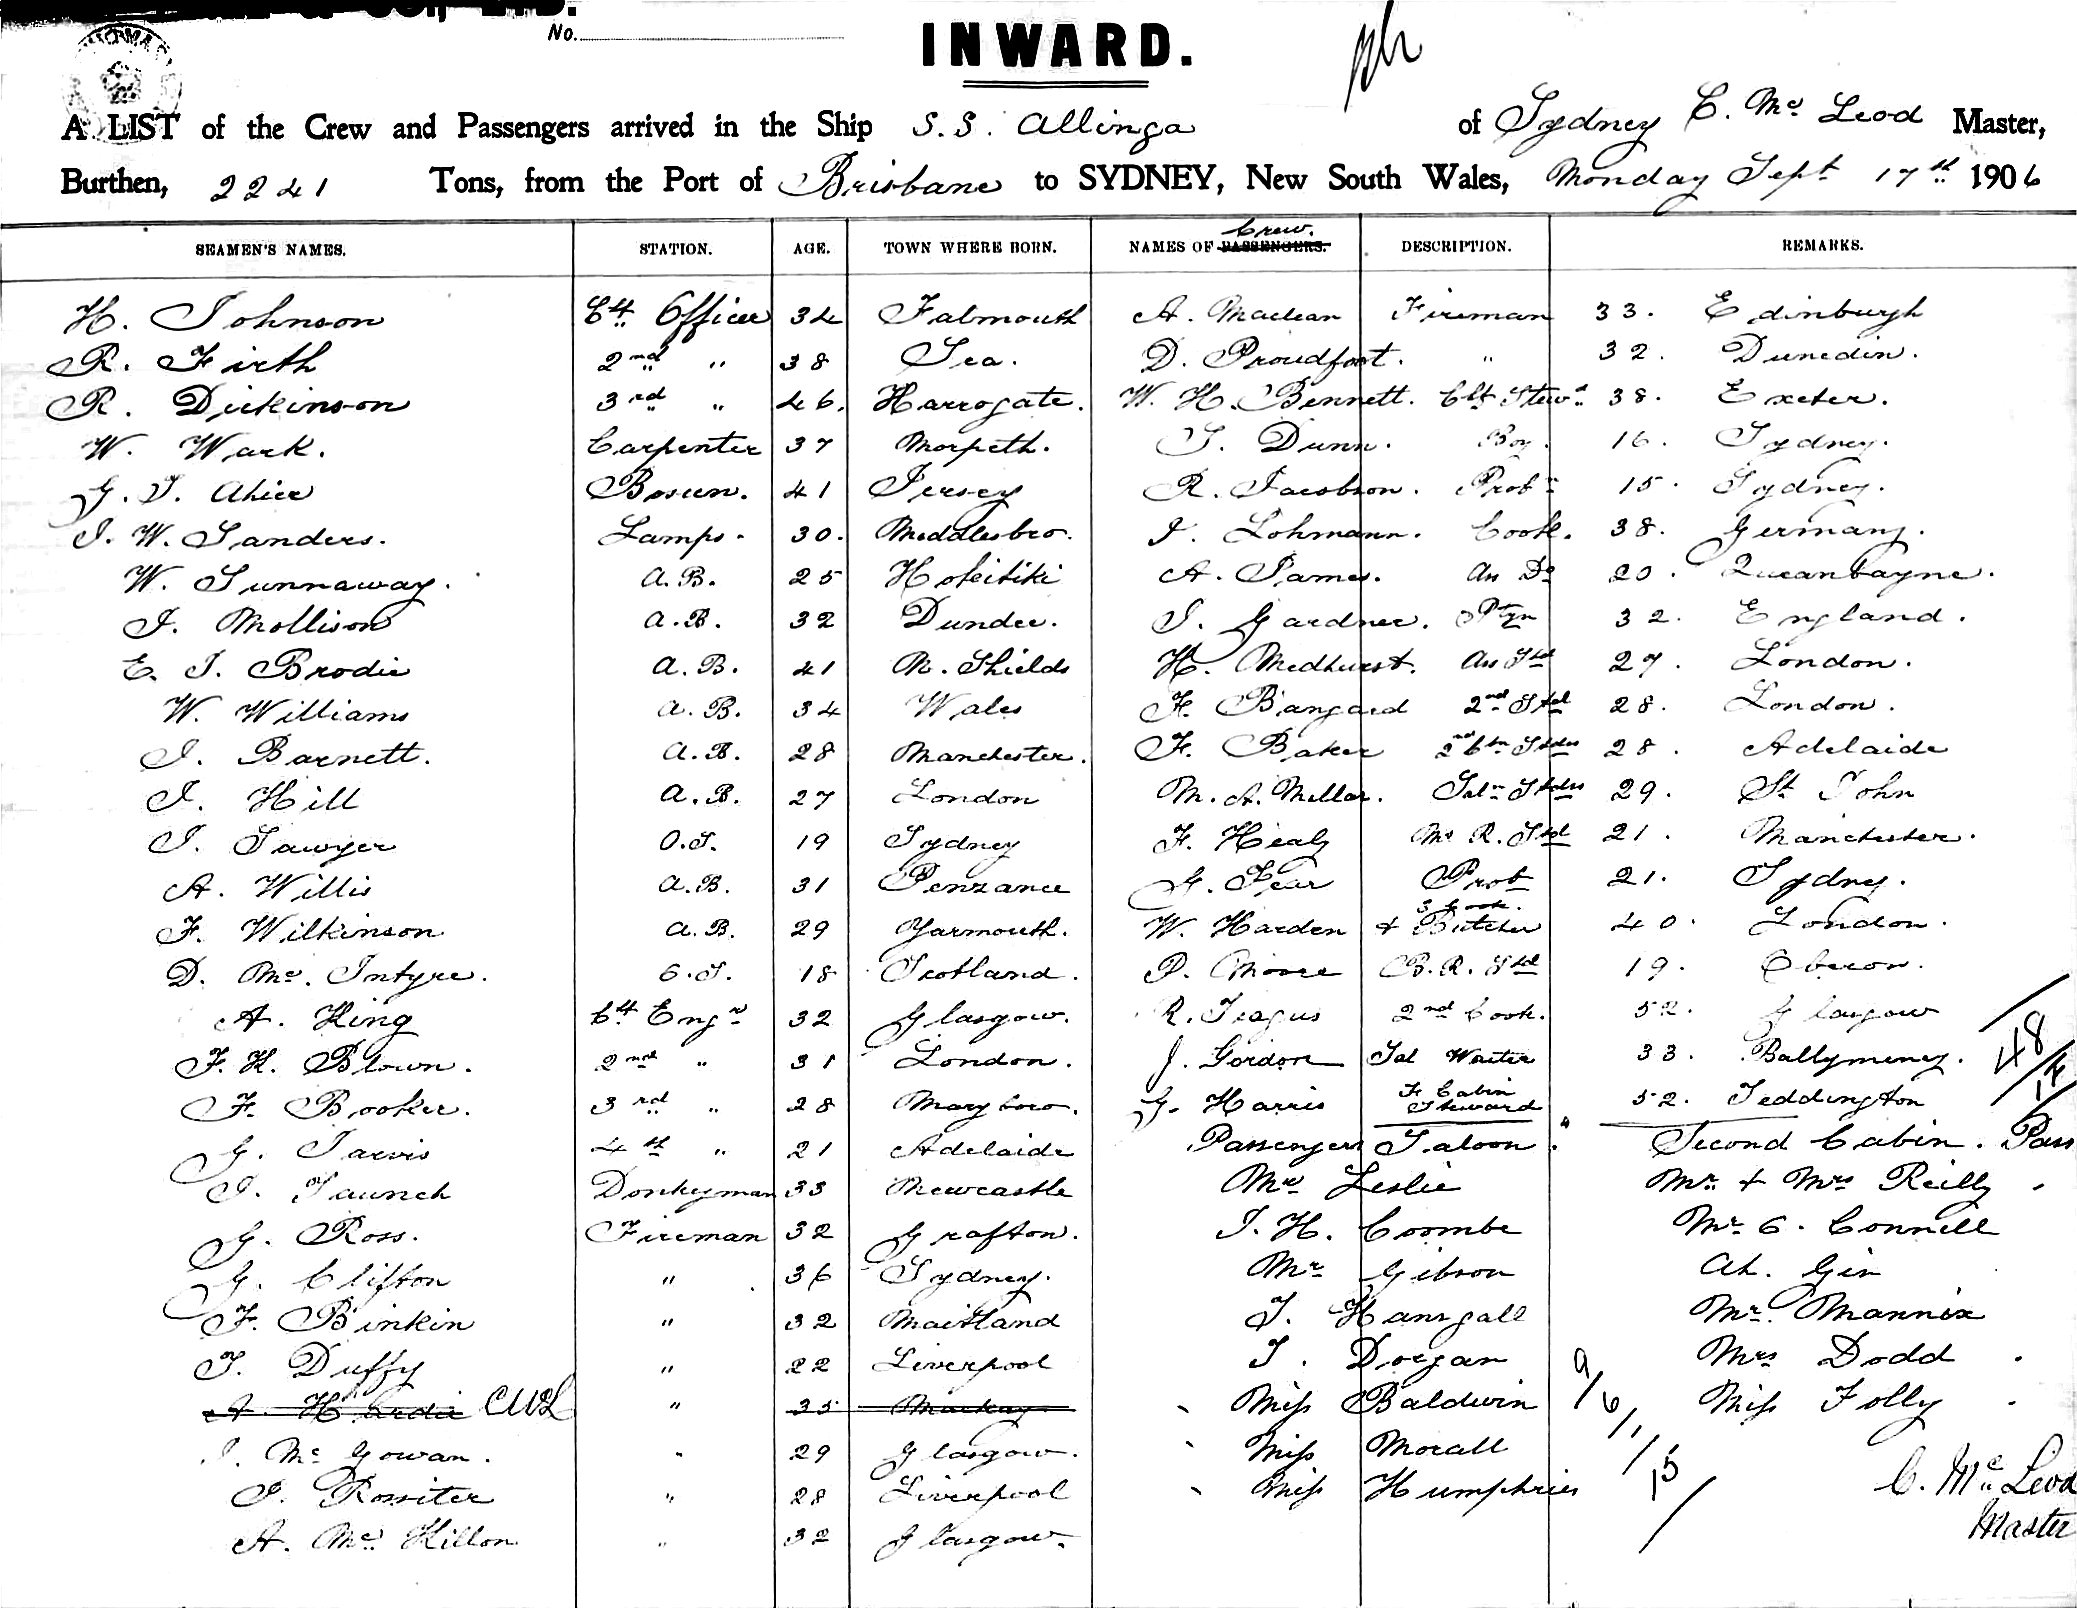 No.
INWARD.
A LIST of the Crew and Passengers arrived in the Ship S.S. Allinga of Sydney C. Mc Leod Master,
Burthen, 2241 Tons, from the Port of Brisbane to SYDNEY, New South Wales, Monday Sept 17th 1906
Crew.
SEAMEN'S NAMES. STATION. AGE. TOWN WHERE BORN. NAMES OF PASSENGERS. DESCRIPTION. REMARKS.
H. Johnson Ch Officer 34 Falmouth A. Maclean Fireman 33. Edinburgh
R. Firth 2nd " 38 Sea. D. Proudfoot. " 32. Dunedin.
R. Dickinson 3rd " 46. Harrogate. W. H. Bennett. Ch Stewd 38. Exeter.
W. Wark. Carpenter 37 Morpeth. J. Dunn. Boy. 16. Sydney.
G. J. Ahier Bosun. 41 Jersey R. Jacobson. Probr 15. Sydney.
J. W. Sanders. Lamps. 30. Middlesbro. J. Lohmann. Cook. 38. Germany.
W. Sunnaway. A.B. 25 Hokitiki A. James. Ass Do 20. Queanbayne.
J. Mollison A.B. 32 Dundee. J. Gardner. 32. England.
E. J. Brodie A.B. 41 N. Shields H. Medhurst. Ass Std 27. London.
W. Williams A.B. 34 Wales F. Bangard 2nd Std 28. London.
J. Barnett. A.B. 28 Manchester. F. Baker 2nd Cbn Stdss 28. Adelaide
J. Hill A.B. 27 London M. A. Millar. Saln Stdss 29. St John
J. Sawyer O.S. 19 Sydney F. Healy Ms R. Std 21. Manchester.
A. Willis A.B. 31 Penzance G. Fear Prob 21. Sydney.
3 Cook.
F. Wilkinson A.B. 29 Yarmouth. W. Harden & Butcher 40. London.
D. Mc Intyre. O.S. 18 Scotland. P. Moore B. R. Std 19. Oberon.
A. King Ch Engr 32 Glasgow. R. Teagus 2nd Cook. 52. Glasgow
F. H. Blown. 2nd " 31 London. J. Gordon Sal Waiter 33. Ballymeney. 48
F. Booker. 3rd " 28 Maryboro. G. Harris F Cabin Steward 52. Teddington
G. Jarvis 4th " 21 Adelaide Passengers Saloon. Second Cabin. Pass
J. Saunch Donkeyman 33 Newcastle Mr Leslie Mr. & Mrs Reilly
G. Ross. Fireman 32 Grafton. J. H. Coombe Mr C. Connell
G. Clifton " 36 Sydney. Mr Gibson Ah. Gin
F. Binkin " 32 Maitland T. Hansgall Mr. Mannix
T. Duffy " 22 Liverpool J. Dorgan Mrs Dodd
A. Hardie " 35 Mackay Miss Baldwin 9/6/ Miss Folly
J. Mc Gowan. " 29 Glasgow. Miss Morall 15
J. Rossiter " 28 Liverpool Miss Humphries C. Mc Leod
A. Mc Killon " 32 Glasgow. Master